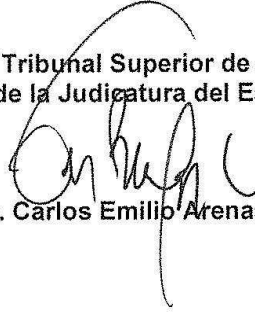 Tribunal Superior de
de la Judicatura del E
. Carlos Emilio Arena